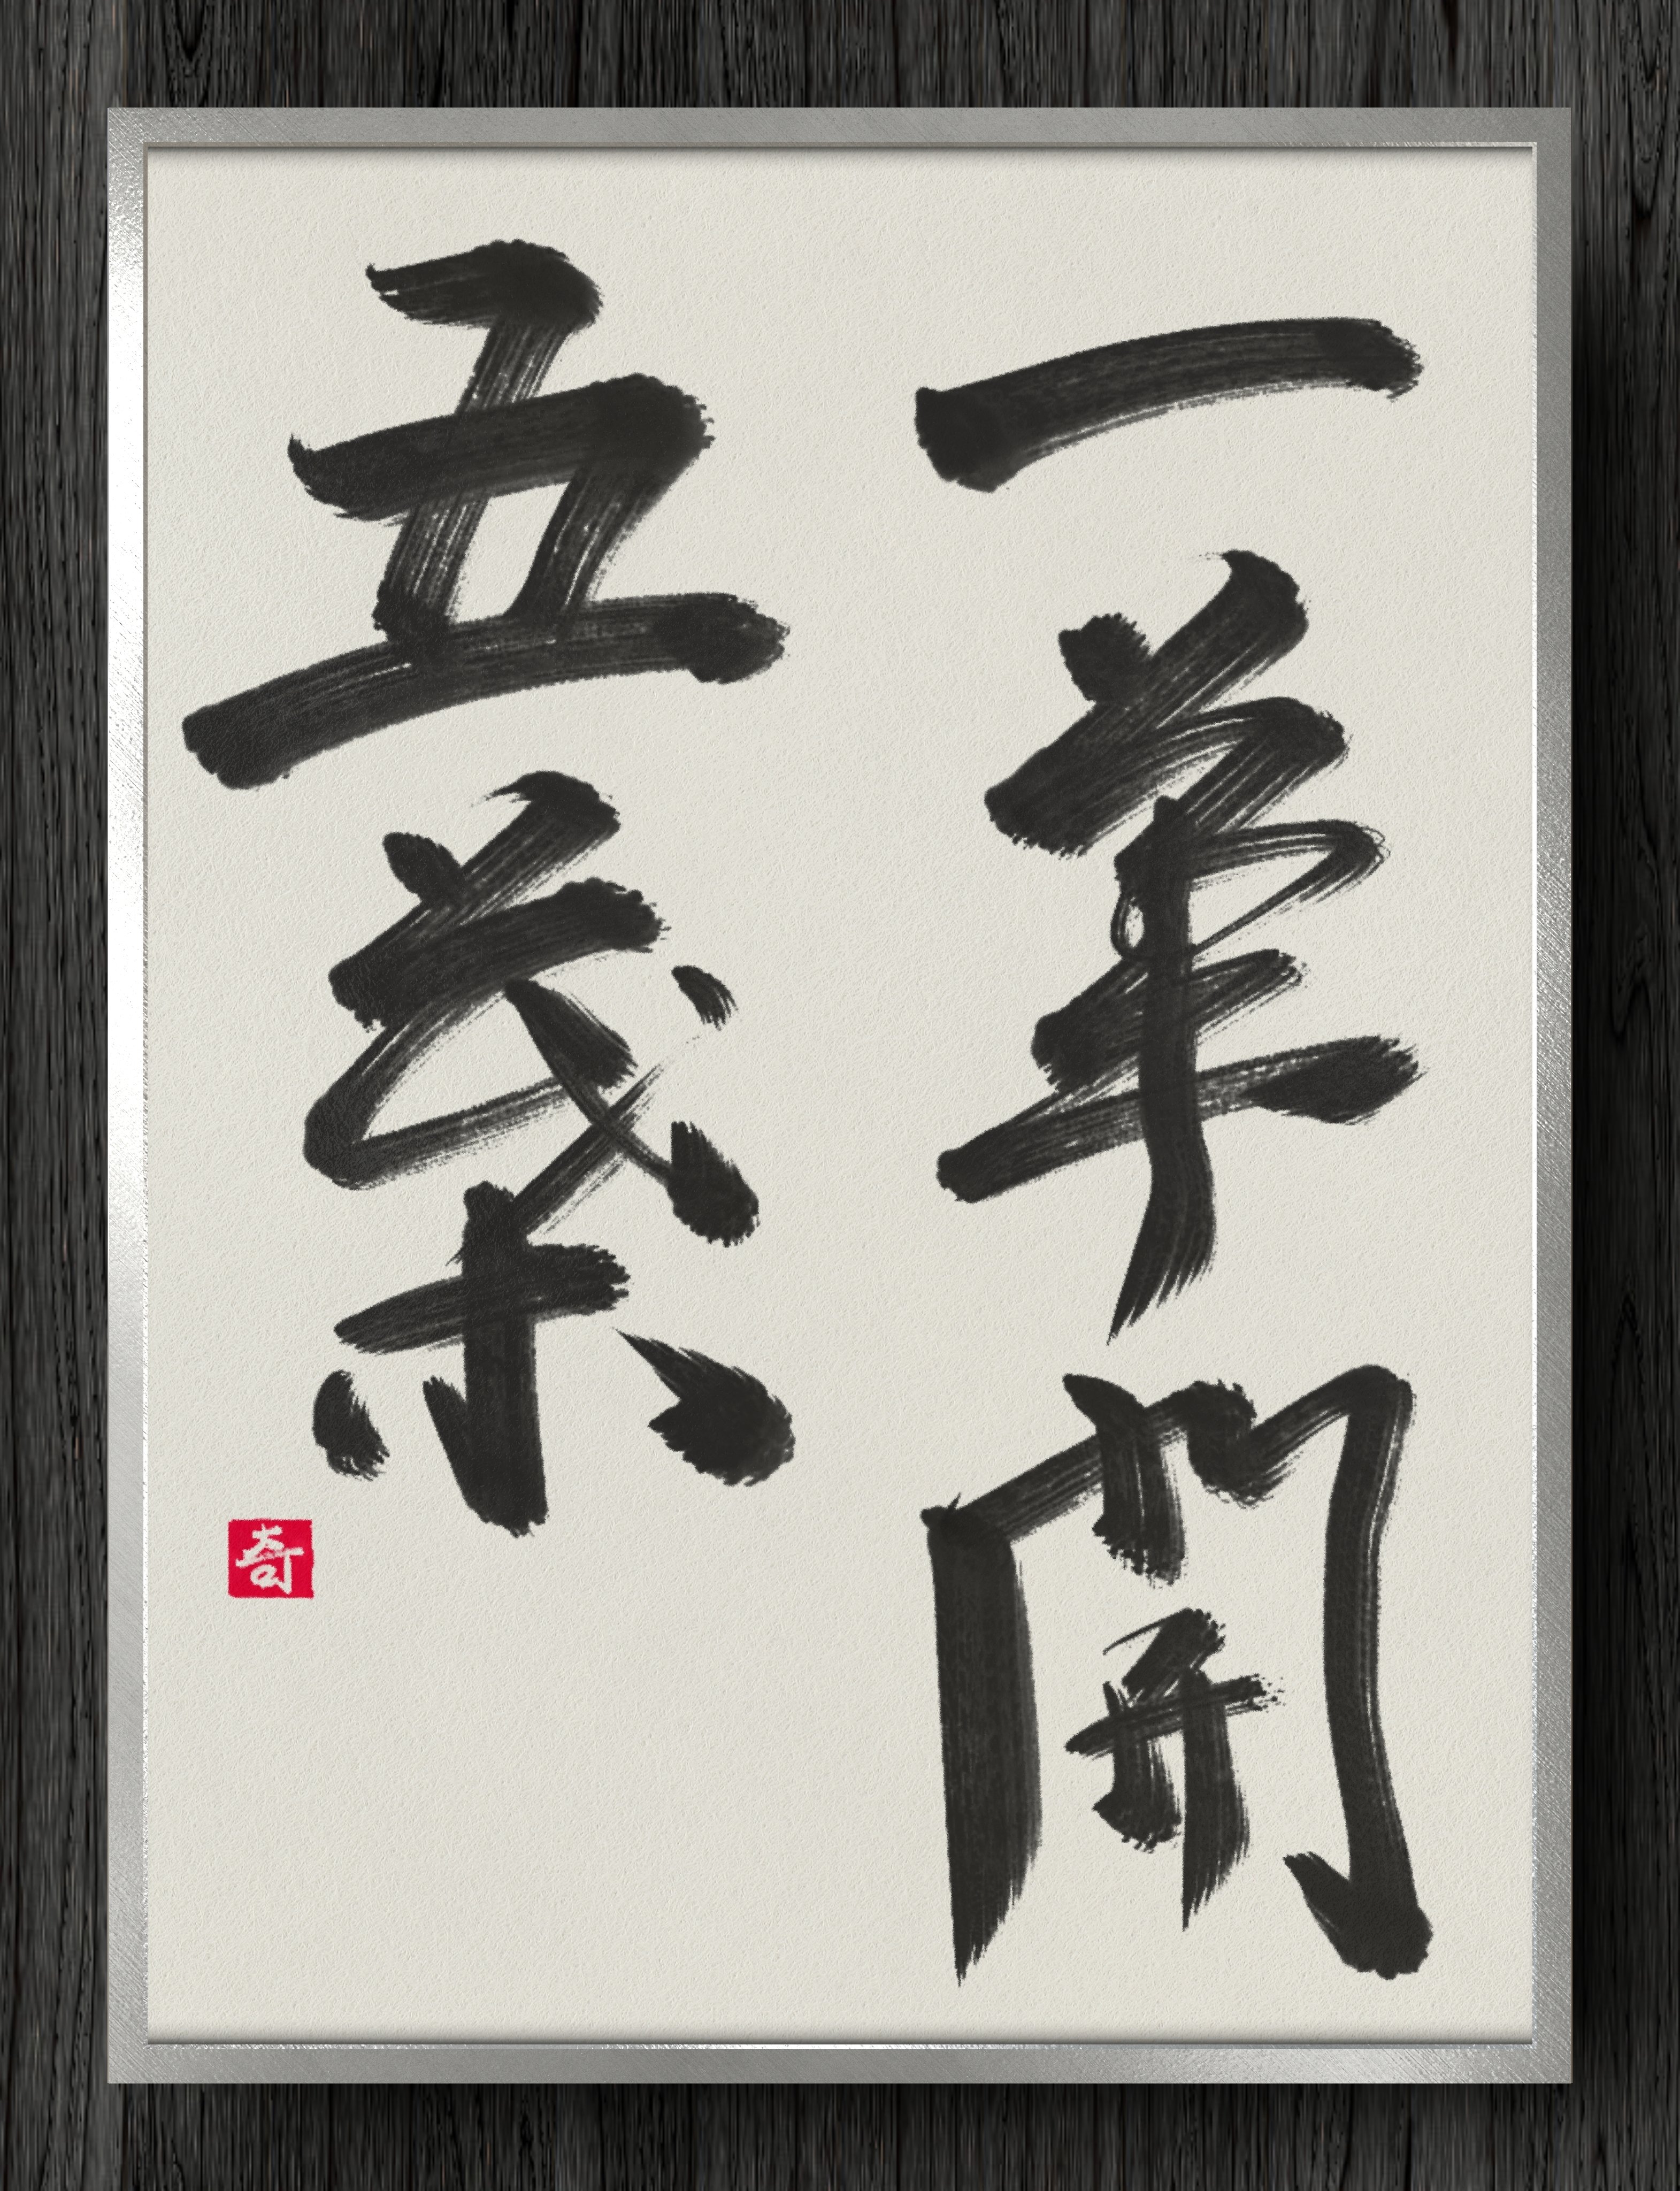 一華開
五葉
奇